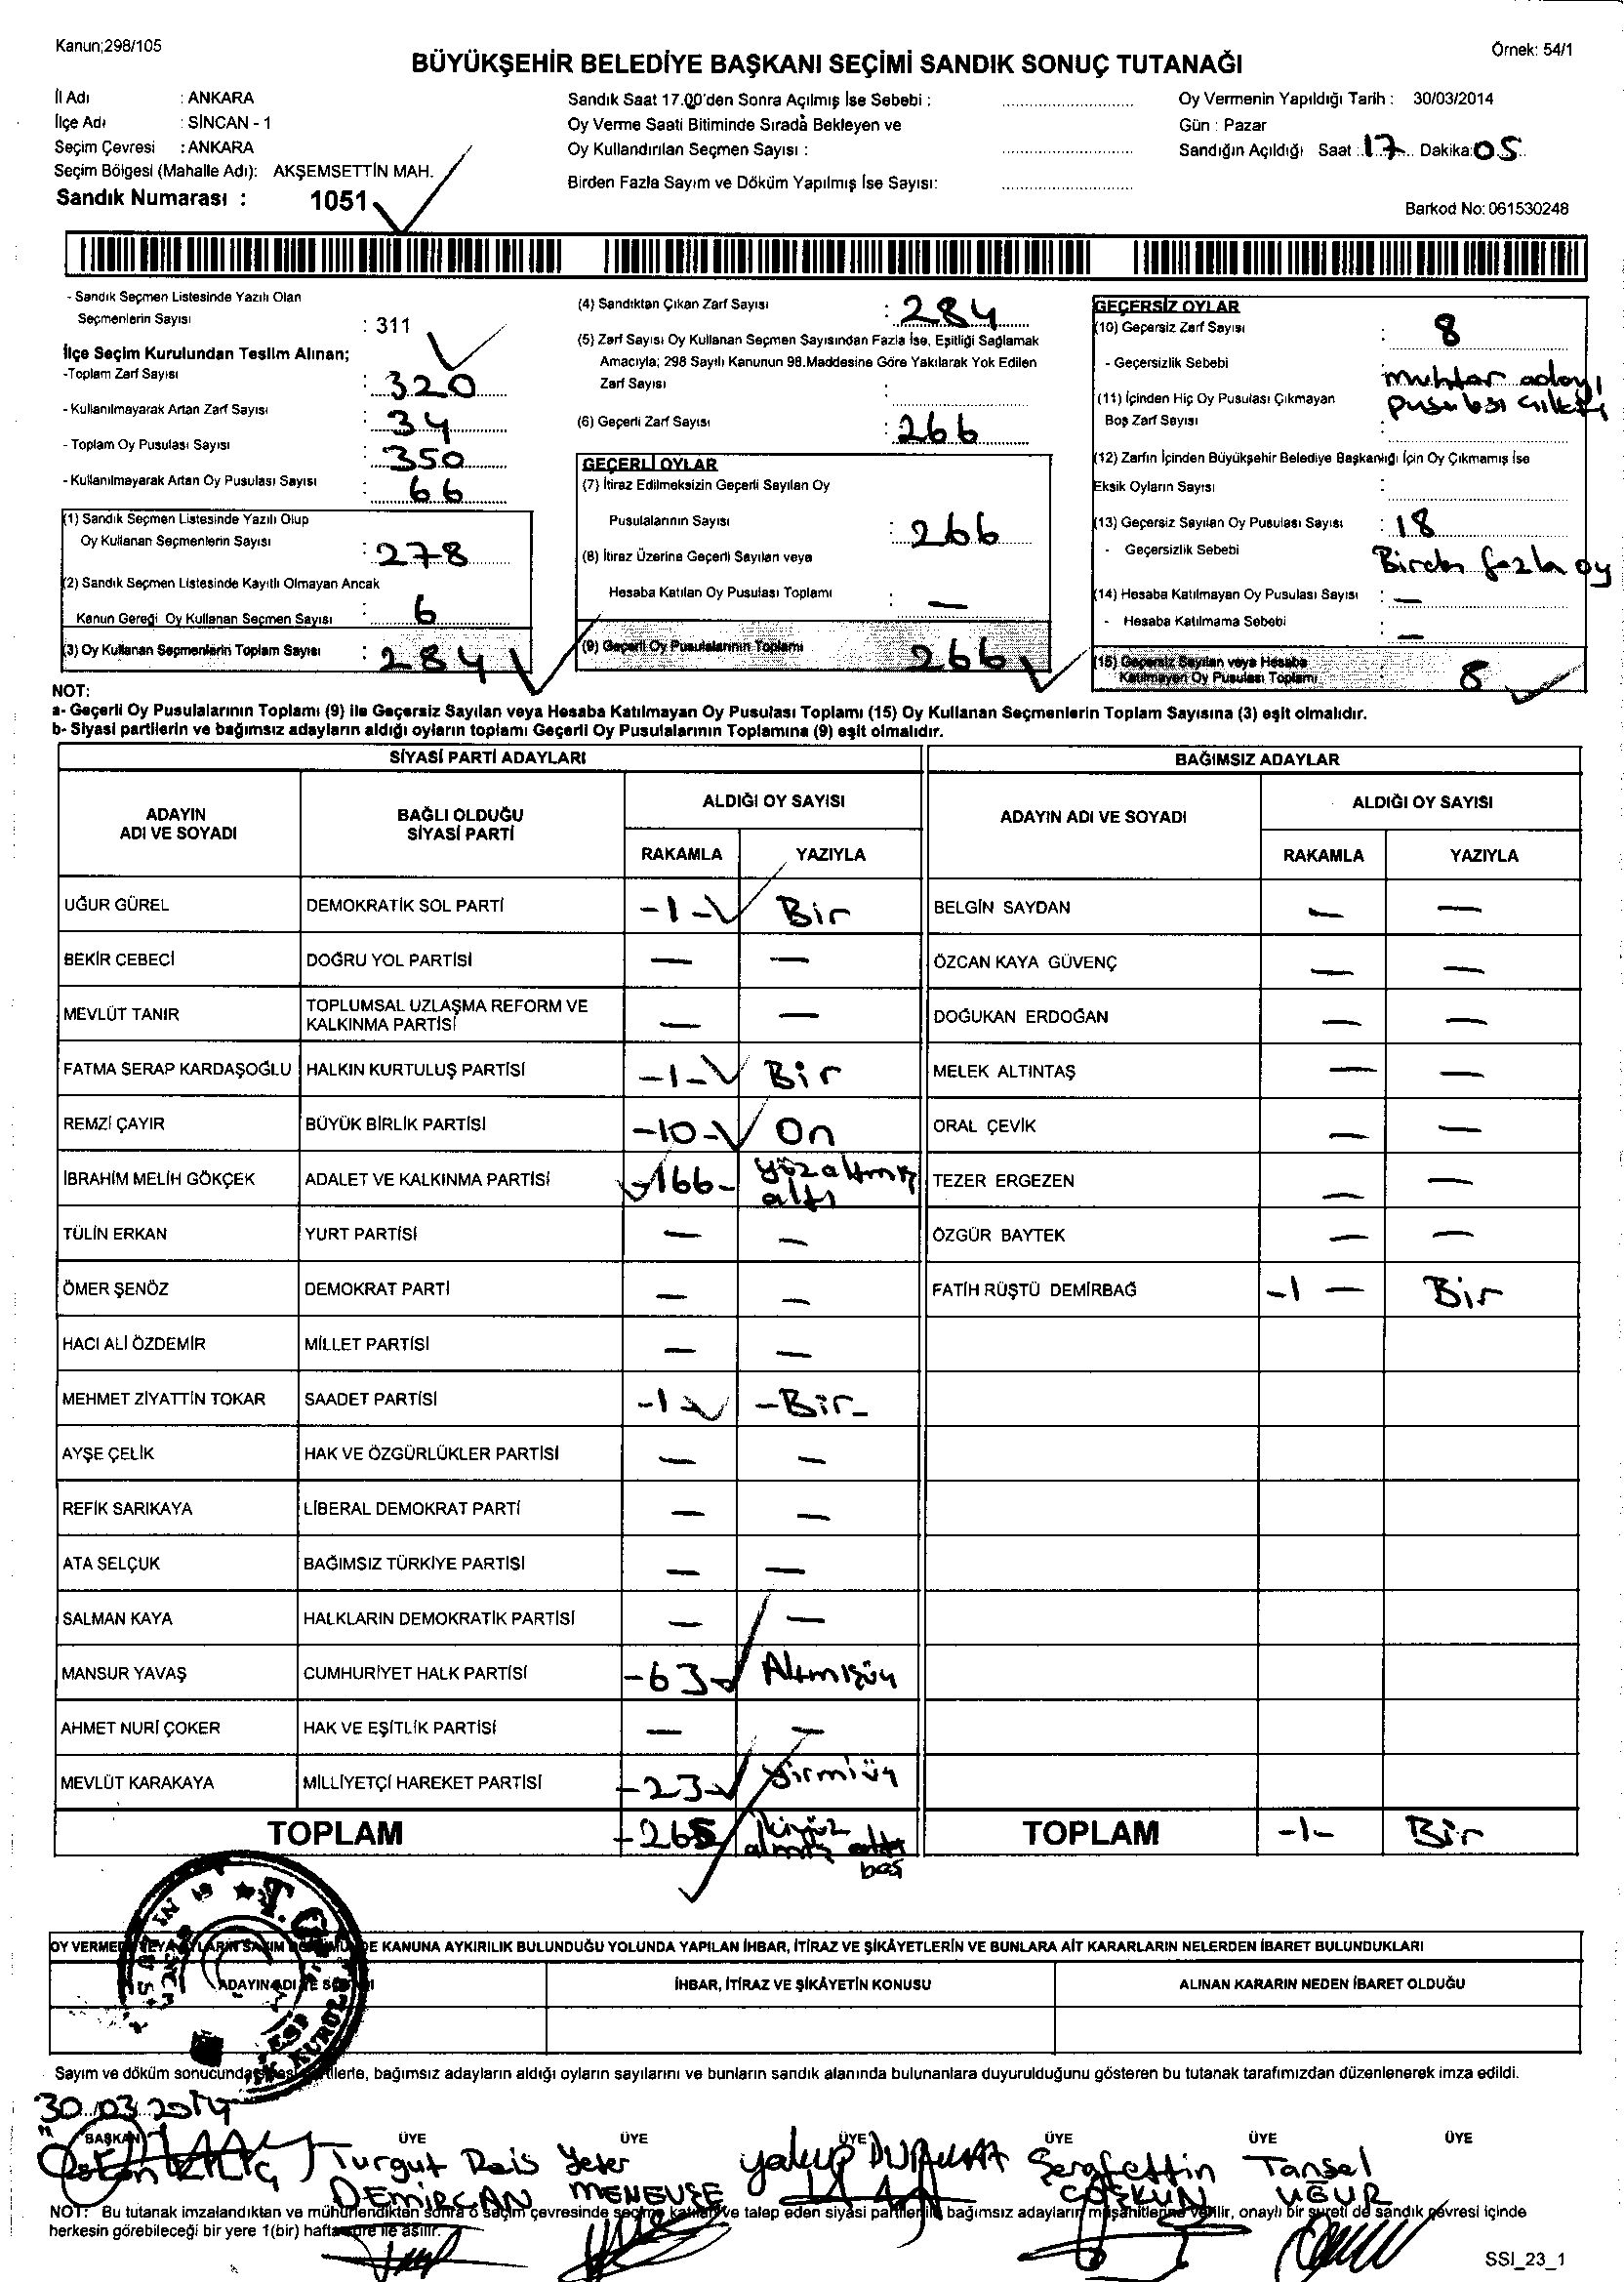 Kanun;298/105
Örnek: 54/1
BÜYÜKŞEHİR BELEDİYE BAŞKANI SEÇİMİ SANDIK SONUÇ TUTANAĞI
İl Adı : ANKARA
İlçe Adı : SİNCAN - 1
Seçim Çevresi : ANKARA
Seçim Bölgesi (Mahalle Adı): AKŞEMSETTİN MAH.
Sandık Numarası : 1051
Sandık Saat 17.00'den Sonra Açılmış İse Sebebi :
Oy Verme Saati Bitiminde Sırada Bekleyen ve
Oy Kullandırılan Seçmen Sayısı :
Birden Fazla Sayım ve Döküm Yapılmış İse Sayısı:
Oy Vermenin Yapıldığı Tarih : 30/03/2014
Gün : Pazar
Sandığın Açıldığı Saat : 17 Dakika: 05
Barkod No: 061530248
- Sandık Seçmen Listesinde Yazılı Olan
Seçmenlerin Sayısı : 311
İlçe Seçim Kurulundan Teslim Alınan;
-Toplam Zarf Sayısı : 320
- Kullanılmayarak Artan Zarf Sayısı : 34
- Toplam Oy Pusulası Sayısı : 350
- Kullanılmayarak Artan Oy Pusulası Sayısı : 66
(1) Sandık Seçmen Listesinde Yazılı Olup
Oy Kullanan Seçmenlerin Sayısı : 278
(2) Sandık Seçmen Listesinde Kayıtlı Olmayan Ancak
Kanun Gereği Oy Kullanan Seçmen Sayısı : 6
(3) Oy Kullanan Seçmenlerin Toplam Sayısı : 284
(4) Sandıktan Çıkan Zarf Sayısı : 284
(5) Zarf Sayısı Oy Kullanan Seçmen Sayısından Fazla İse, Eşitliği Sağlamak
Amacıyla; 298 Sayılı Kanunun 98.Maddesine Göre Yakılarak Yok Edilen
Zarf Sayısı :
(6) Geçerli Zarf Sayısı : 266
GEÇERLİ OYLAR
(7) İtiraz Edilmeksizin Geçerli Sayılan Oy
Pusulalarının Sayısı : 266
(8) İtiraz Üzerine Geçerli Sayılan veya
Hesaba Katılan Oy Pusulası Toplamı : —
(9) Geçerli Oy Pusulalarının Toplamı 266
GEÇERSİZ OYLAR
(10) Geçersiz Zarf Sayısı : 8
- Geçersizlik Sebebi muhtar adayı
pusulası çıktı
(11) İçinden Hiç Oy Pusulası Çıkmayan
Boş Zarf Sayısı :
(12) Zarfın İçinden Büyükşehir Belediye Başkanlığı İçin Oy Çıkmamış İse
Eksik Oyların Sayısı :
(13) Geçersiz Sayılan Oy Pusulası Sayısı : 18
- Geçersizlik Sebebi Birden fazla oy
(14) Hesaba Katılmayan Oy Pusulası Sayısı : —
- Hesaba Katılmama Sebebi : —
(15) Geçersiz Sayılan veya Hesaba
Katılmayan Oy Pusulası Toplamı : 8
NOT:
a- Geçerli Oy Pusulalarının Toplamı (9) ile Geçersiz Sayılan veya Hesaba Katılmayan Oy Pusulası Toplamı (15) Oy Kullanan Seçmenlerin Toplam Sayısına (3) eşit olmalıdır.
b- Siyasi partilerin ve bağımsız adayların aldığı oyların toplamı Geçerli Oy Pusulalarının Toplamına (9) eşit olmalıdır.
SİYASİ PARTİ ADAYLARI BAĞIMSIZ ADAYLAR
ADAYIN ADI VE SOYADI BAĞLI OLDUĞU SİYASİ PARTİ ALDIĞI OY SAYISI ADAYIN ADI VE SOYADI ALDIĞI OY SAYISI
RAKAMLA YAZIYLA RAKAMLA YAZIYLA
UĞUR GÜREL DEMOKRATİK SOL PARTİ -1- Bir BELGİN SAYDAN — —
BEKİR CEBECİ DOĞRU YOL PARTİSİ — — ÖZCAN KAYA GÜVENÇ — —
MEVLÜT TANIR TOPLUMSAL UZLAŞMA REFORM VE KALKINMA PARTİSİ — — DOĞUKAN ERDOĞAN — —
FATMA SERAP KARDAŞOĞLU HALKIN KURTULUŞ PARTİSİ -1- Bir MELEK ALTINTAŞ — —
REMZİ ÇAYIR BÜYÜK BİRLİK PARTİSİ -10- On ORAL ÇEVİK — —
İBRAHİM MELİH GÖKÇEK ADALET VE KALKINMA PARTİSİ -166- yüzaltmış altı TEZER ERGEZEN — —
TÜLİN ERKAN YURT PARTİSİ — — ÖZGÜR BAYTEK — —
ÖMER ŞENÖZ DEMOKRAT PARTİ — — FATİH RÜŞTÜ DEMİRBAĞ -1 — Bir
HACI ALİ ÖZDEMİR MİLLET PARTİSİ — —
MEHMET ZİYATTİN TOKAR SAADET PARTİSİ -1- -Bir-
AYŞE ÇELİK HAK VE ÖZGÜRLÜKLER PARTİSİ — —
REFİK SARIKAYA LİBERAL DEMOKRAT PARTİ — —
ATA SELÇUK BAĞIMSIZ TÜRKİYE PARTİSİ — —
SALMAN KAYA HALKLARIN DEMOKRATİK PARTİSİ — —
MANSUR YAVAŞ CUMHURİYET HALK PARTİSİ -63- Altmışüç
AHMET NURİ ÇOKER HAK VE EŞİTLİK PARTİSİ — —
MEVLÜT KARAKAYA MİLLİYETÇİ HAREKET PARTİSİ -23- yirmiüç
TOPLAM -265 ikiyüz almış altı beş TOPLAM -1- Bir
OY VERMEDE VEYA OYLARIN SAYIM DÖKÜMÜNDE KANUNA AYKIRILIK BULUNDUĞU YOLUNDA YAPILAN İHBAR, İTİRAZ VE ŞİKÂYETLERİN VE BUNLARA AİT KARARLARIN NELERDEN İBARET BULUNDUKLARI
ADAYIN ADI VE SOYADI İHBAR, İTİRAZ VE ŞİKÂYETİN KONUSU ALINAN KARARIN NEDEN İBARET OLDUĞU
Sayım ve döküm sonucunda siyasi partilerle, bağımsız adayların aldığı oyların sayılarını ve bunların sandık alanında bulunanlara duyurulduğunu gösteren bu tutanak tarafımızdan düzenlenerek imza edildi.
30.03.2014
BAŞKAN ÜYE ÜYE ÜYE ÜYE ÜYE ÜYE
Turgut Reis DEMİRCAN Yeter MENEVŞE Yakup Şerafettin COŞKUN Tansel UĞUR
NOT: Bu tutanak imzalandıktan ve mühürlendikten sonra o seçim çevresinde seçime katılan ve talep eden siyasi partilerin, bağımsız adayların müşahitlerine verilir, onaylı bir sureti de sandık çevresi içinde
herkesin görebileceği bir yere 1(bir) hafta süre ile asılır.
SSI_23_1